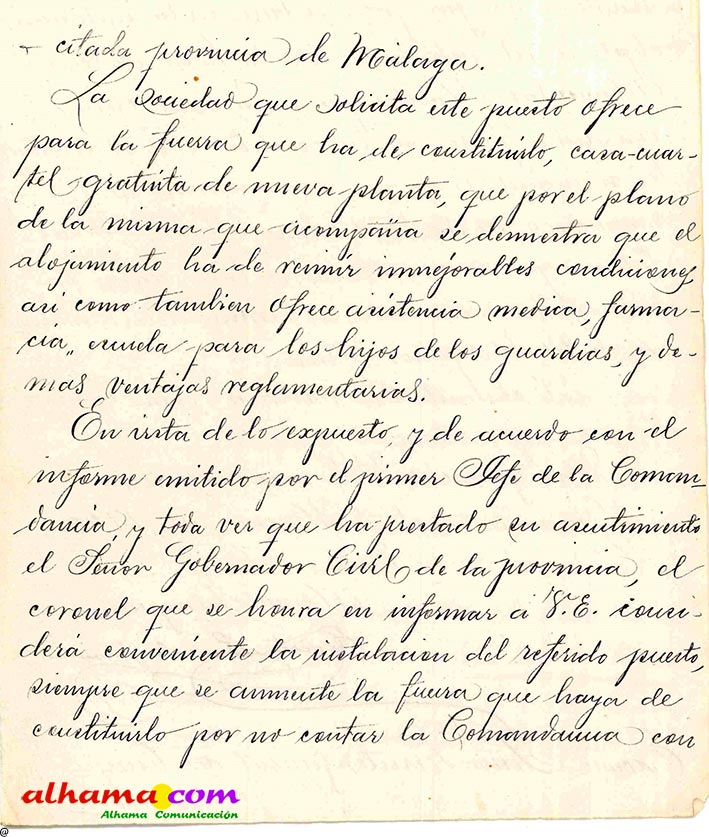 citada provincia de Málaga.
La sociedad que solicita este puesto ofrece
para la fuerza que ha de constituirlo, casa-cuar-
tel gratuita de nueva planta, que por el plano
de la misma que acompaña se demuestra que el
alojamiento ha de reunir inmejorables condiciones,
así como tambien ofrece asistencia medica, farma-
cia, escuela para los hijos de los guardias, y de-
mas ventajas reglamentarias.
En vista de lo expuesto y de acuerdo con el
informe emitido por el primer Jefe de la Coman-
dancia, y toda vez que ha prestado su asentimiento
el Señor Gobernador Civil de la provincia, el
coronel que se honra en informar á V.E. consi-
derá conveniente la instalacion del referido puesto,
siempre que se aumente la fuerza que haya de
constituirlo por no contar la Comandancia con
alhama.com
Alhama Comunicación
@